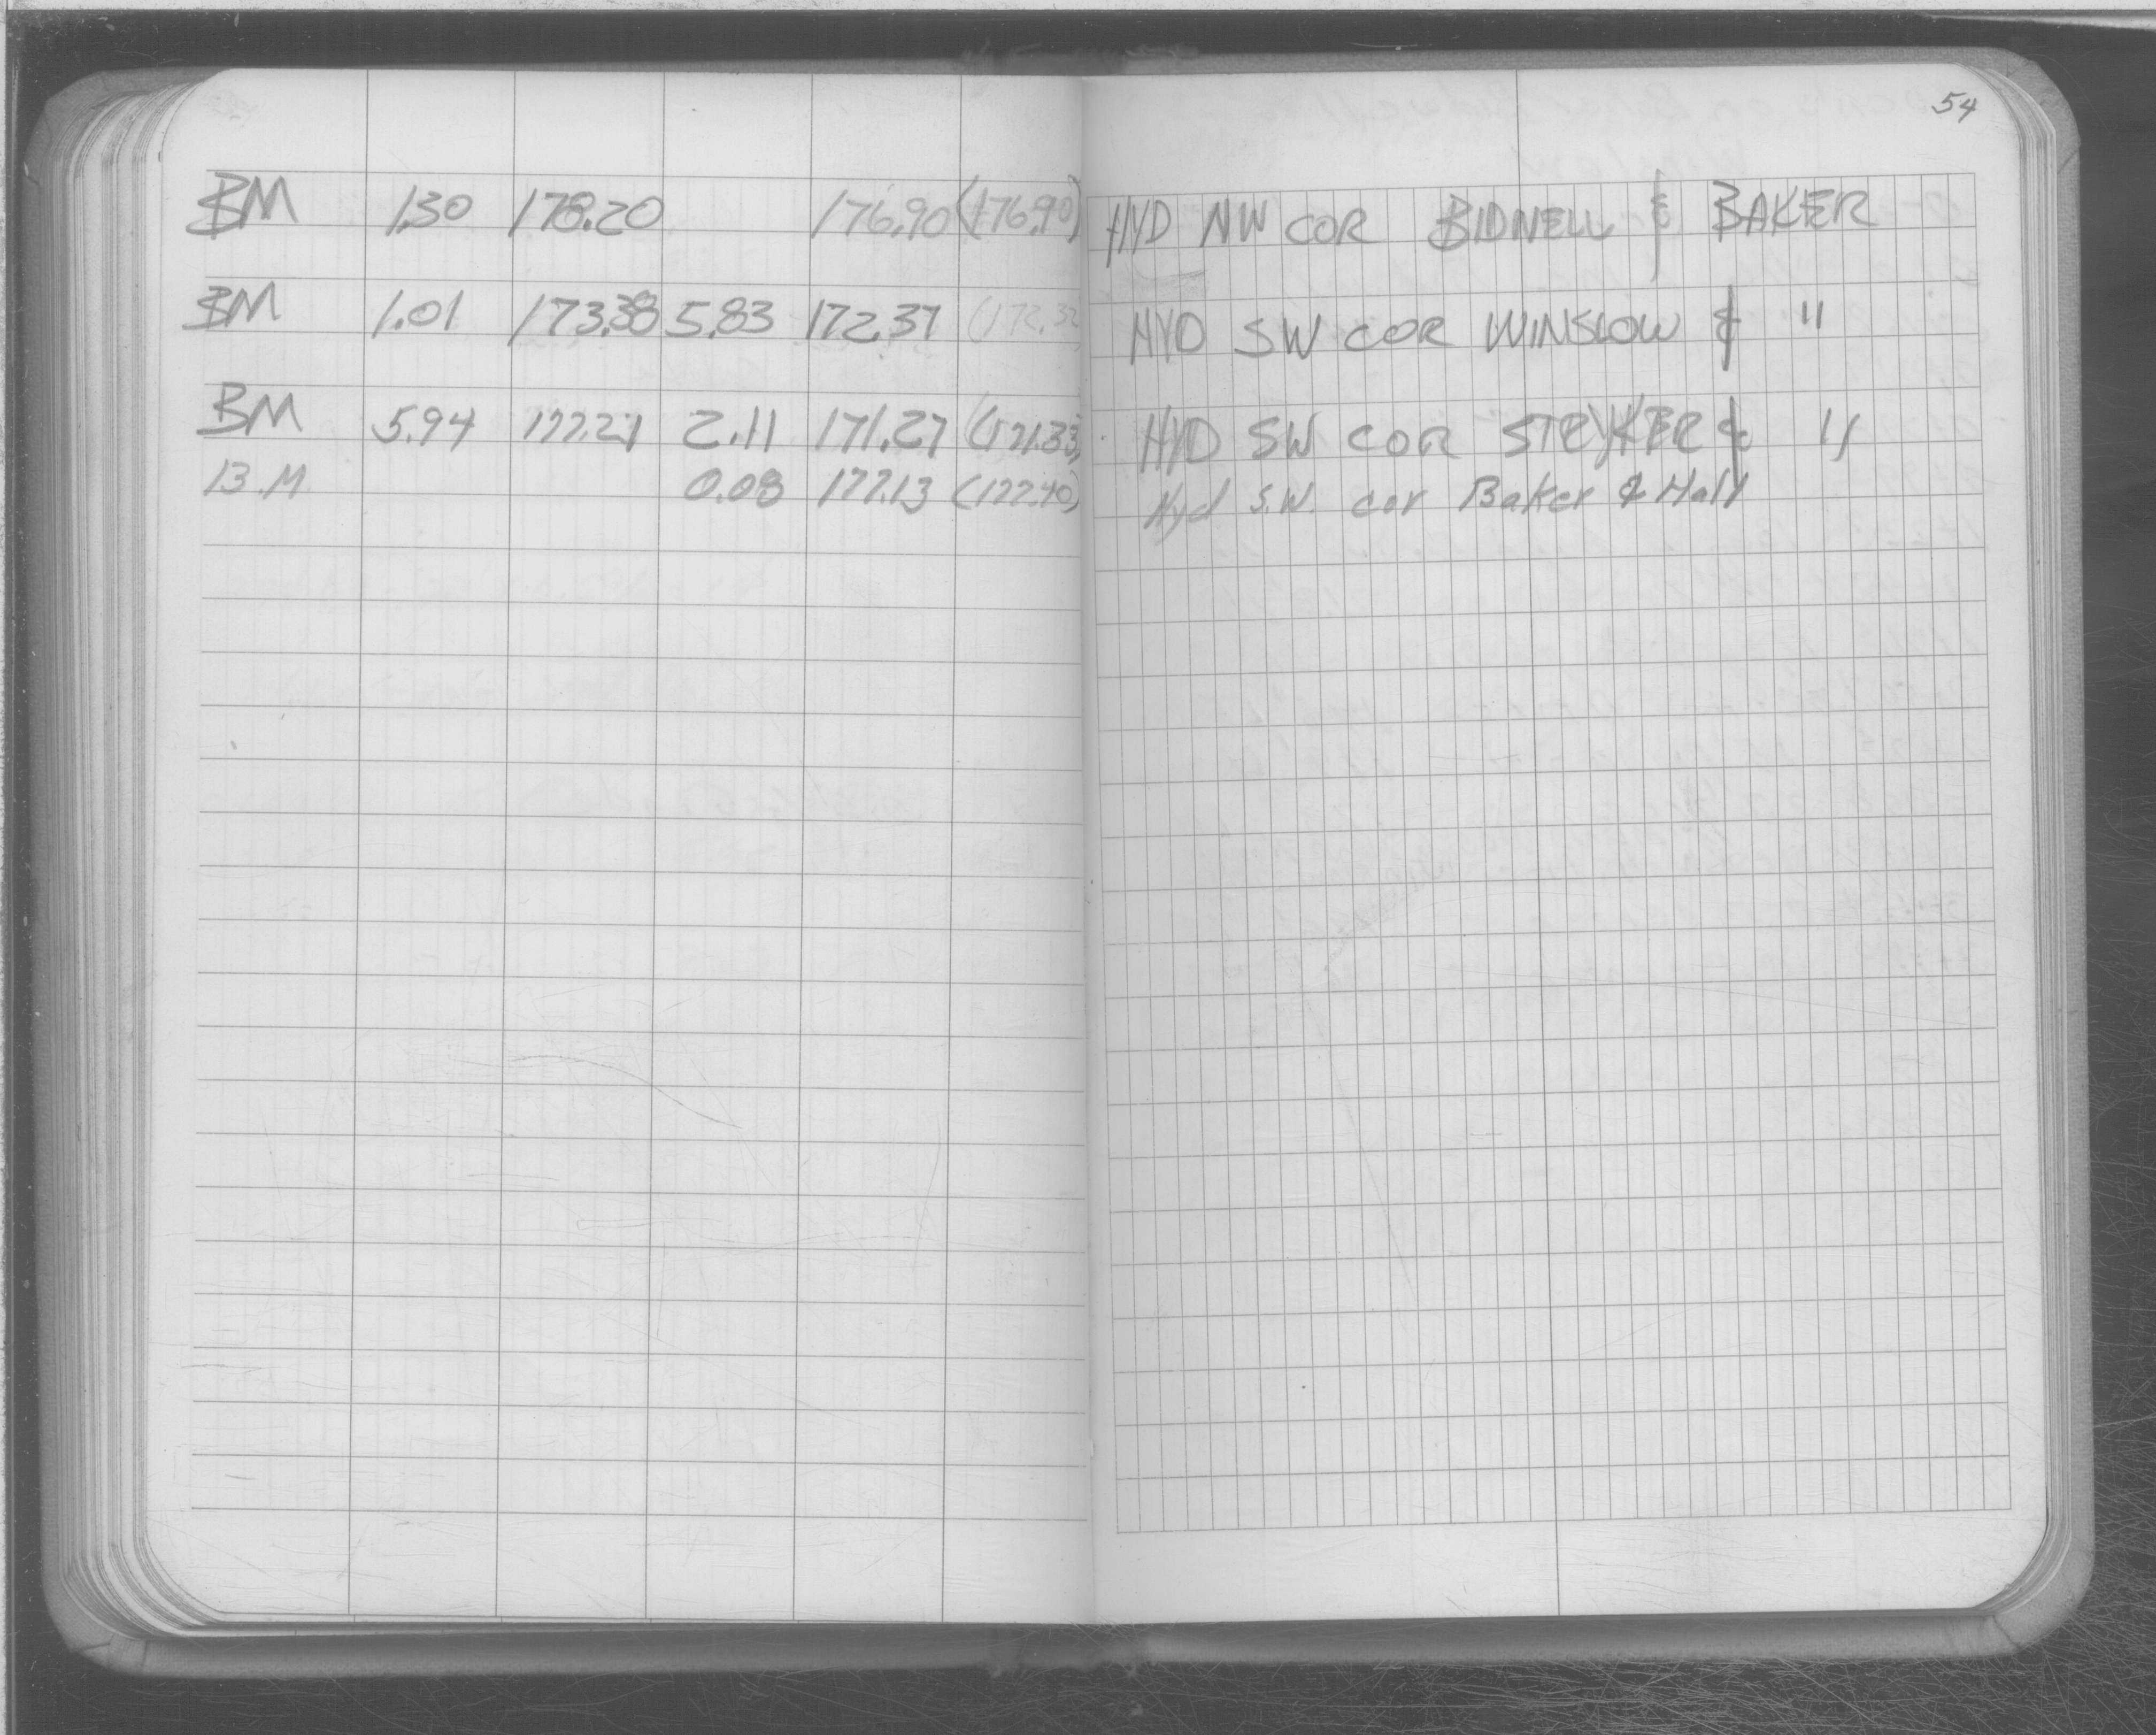 54
BM 1.30 178.20 176.90 (176.90) HYD NW COR BIDNELL & BAKER
BM 1.01 173.38 5.83 172.37 (172.32 HYD SW COR WINSLOW & "
BM 5.94 177.21 2.11 171.27 (171.33) HYD SW COR STRYKER & "
B.M. 0.08 177.13 (177.40) Hyd S.W. cor Baker & Hall